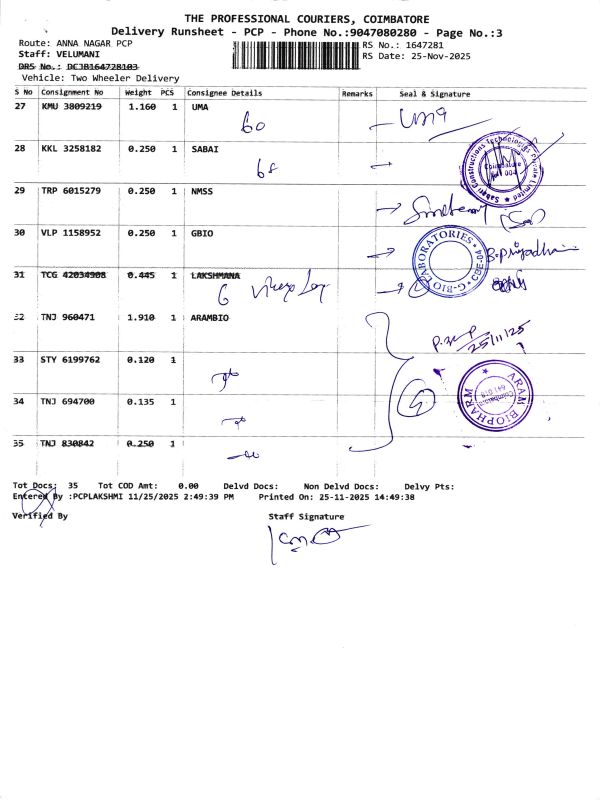 THE PROFESSIONAL COURIERS, COIMBATORE
Delivery Runsheet - PCP - Phone No.:9047080280 - Page No.:3
Route: ANNA NAGAR PCP RS No.: 1647281
Staff: VELUMANI RS Date: 25-Nov-2025
DRS No.: DCJB164728103
Vehicle: Two Wheeler Delivery
S No Consignment No Weight PCS Consignee Details Remarks Seal & Signature
27 KMU 3809219 1.160 1 UMA
60 uma
28 KKL 3258182 0.250 1 SABAI
Sabari Constructions Technologies Private Limited
Coimbatore
29 TRP 6015279 0.250 1 NMSS
30 VLP 1158952 0.250 1 GBIO
G-BIO LABORATORIES CBE-04
31 TCG 42034908 0.445 1 LAKSHMANA
32 TNJ 960471 1.910 1 ARAMBIO
25/11/25
33 STY 6199762 0.120 1
ARAM BIOPHARM
Coimbatore
34 TNJ 694700 0.135 1
35 TNJ 830842 0.250 1
Tot Docs: 35 Tot COD Amt: 0.00 Delvd Docs: Non Delvd Docs: Delvy Pts:
Entered By :PCPLAKSHMI 11/25/2025 2:49:39 PM Printed On: 25-11-2025 14:49:38
Verified By Staff Signature